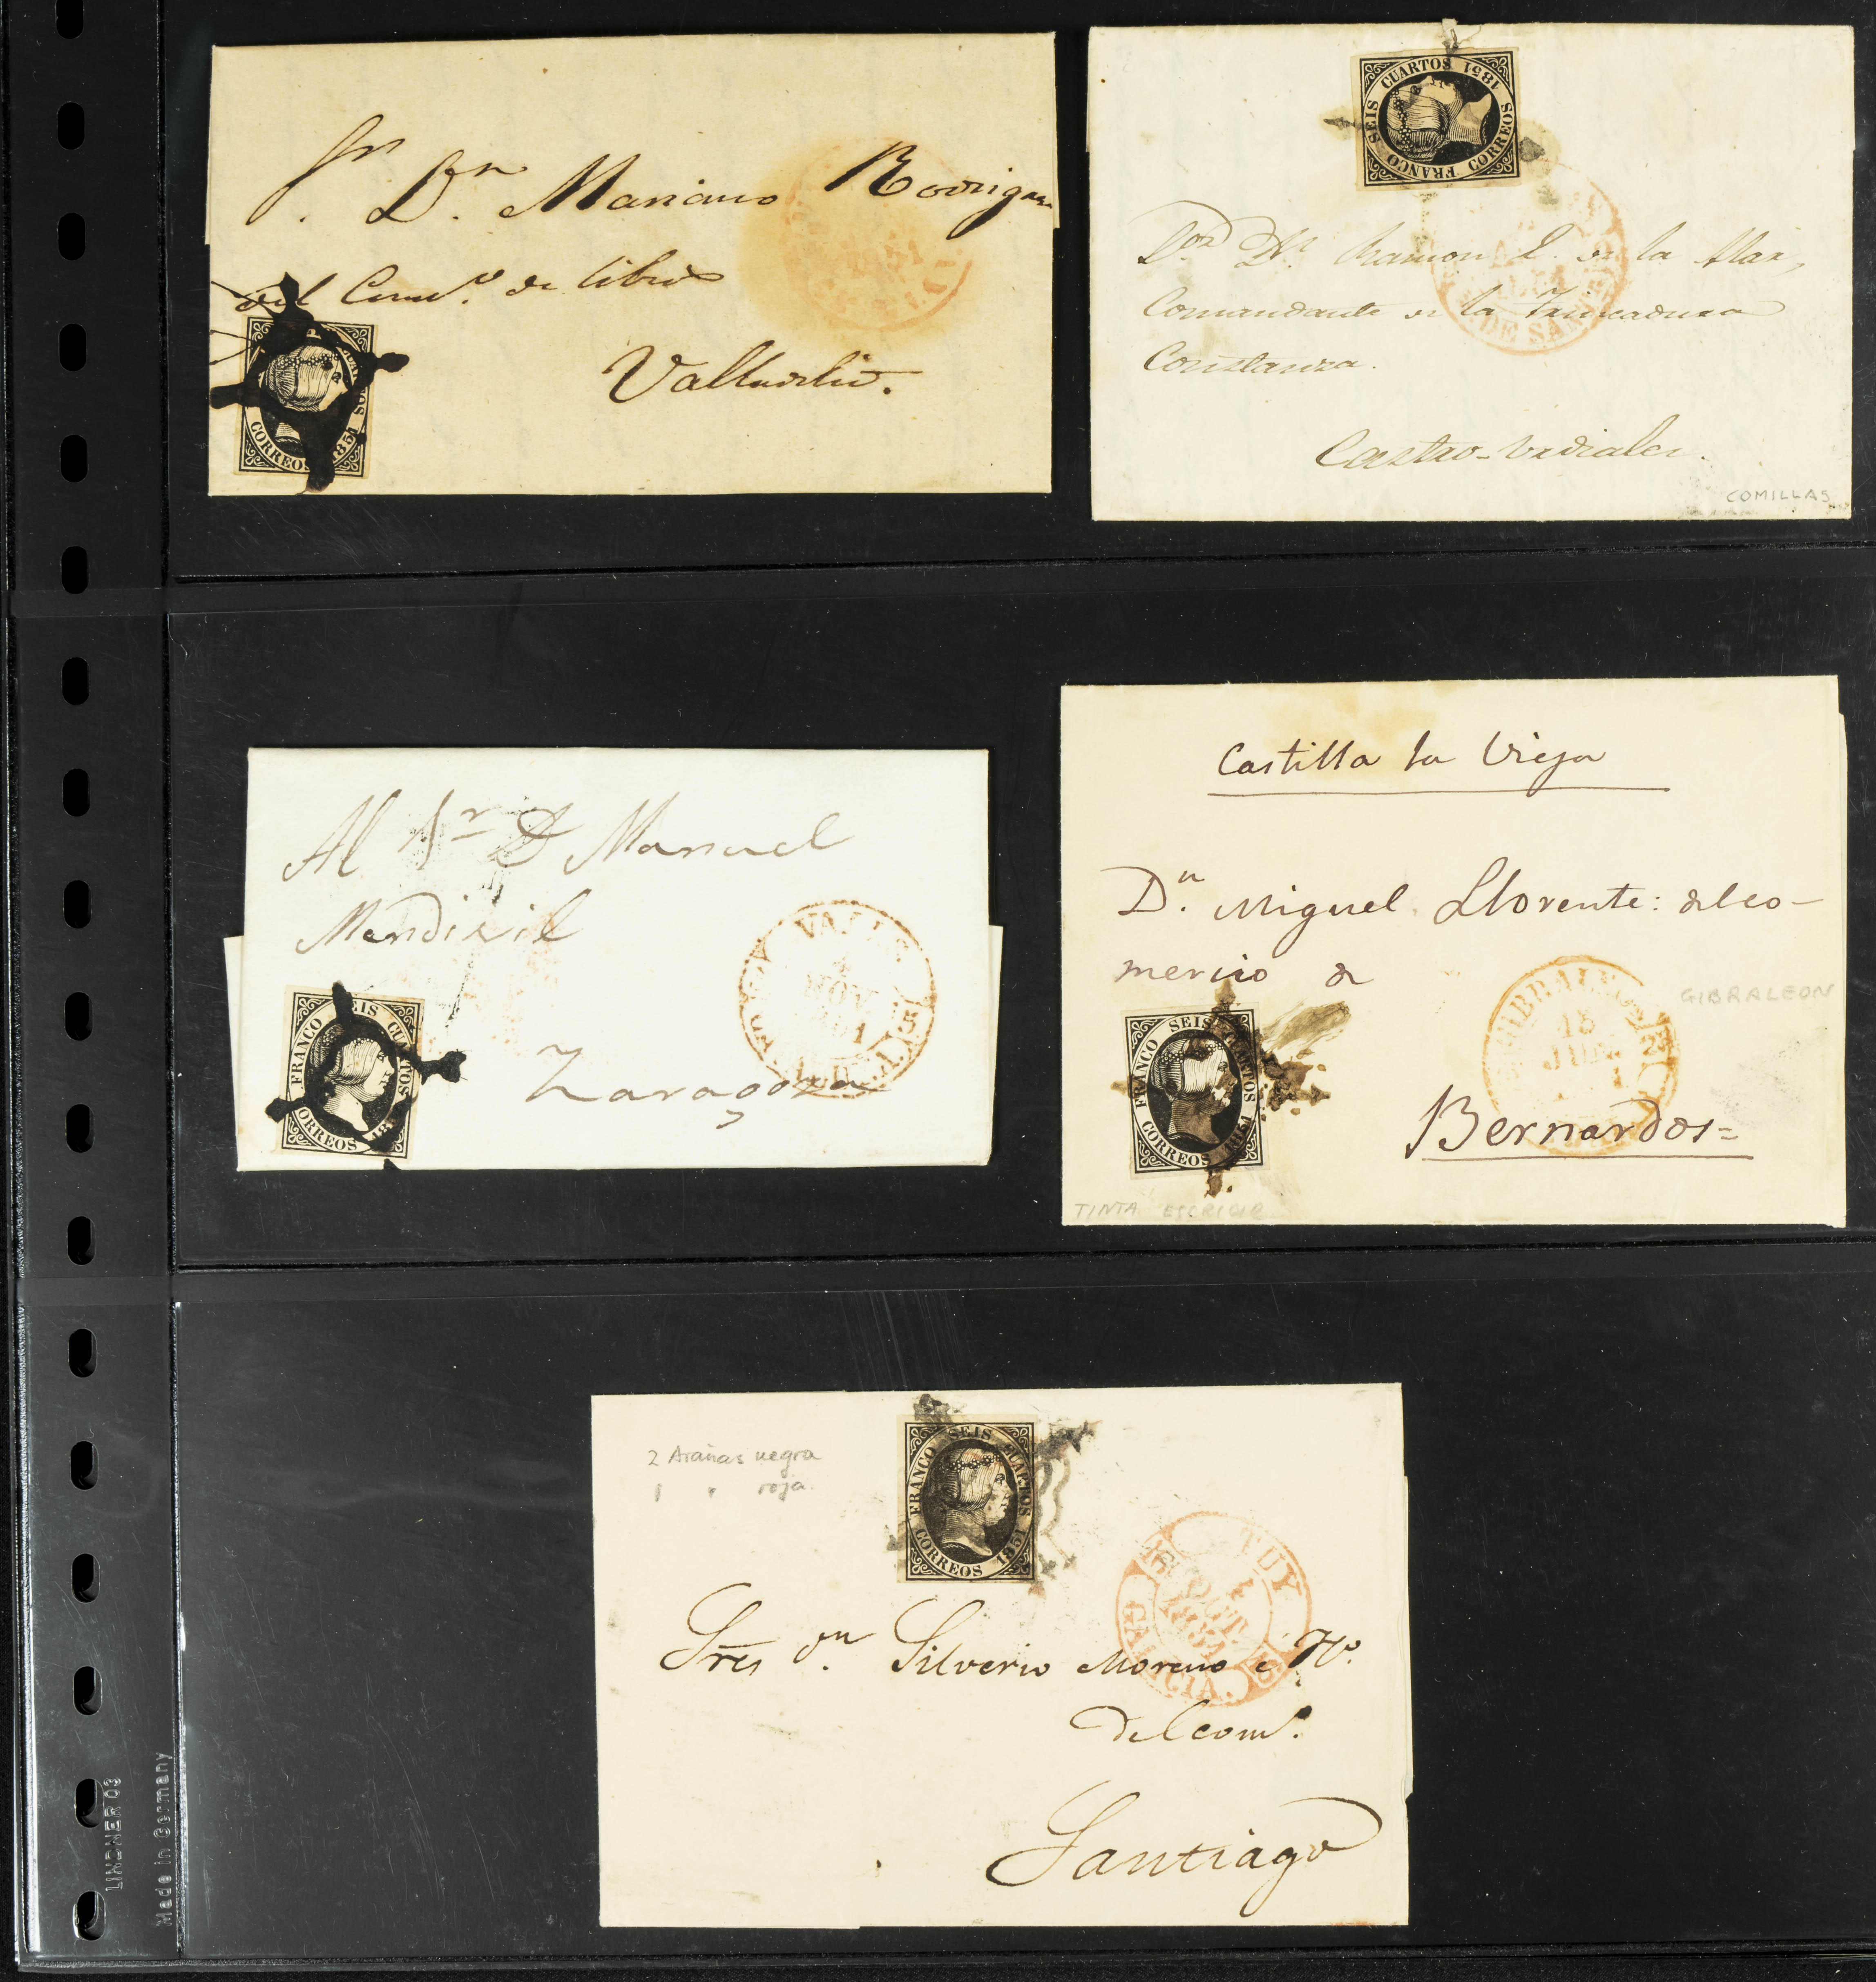 Sr. Dn. Mariano Rodriguez
del Como. de libros
Valladolid.
FRANCO SEIS CUARTOS
CORREOS 1851
Dn. Ramon de la Mar,
Comandante de la Trincadura
Constanza.
Castro-Urdiales.
DE SAN
COMILLAS
Al Sr D Manuel
Mendivil
Zaragoza
FRANCO SEIS CUARTOS
CORREOS 18
NOV
Castilla la Vieja
Dn. Miguel Llorente: delco-
mercio de
Bernardos=
FRANCO SEIS CUARTOS
CORREOS 1851
GIBRALEON
18
JUN
TINTA ESCRIBIR
2 Arañas negra
1 " roja.
FRANCO SEIS CUARTOS
CORREOS 1851
TUY
1
OCT.
1851
GALICIA.
Sres Dn. Silverio Moreno é Ho.
del com.
Santiago
LINDNER 03
Made in Germany